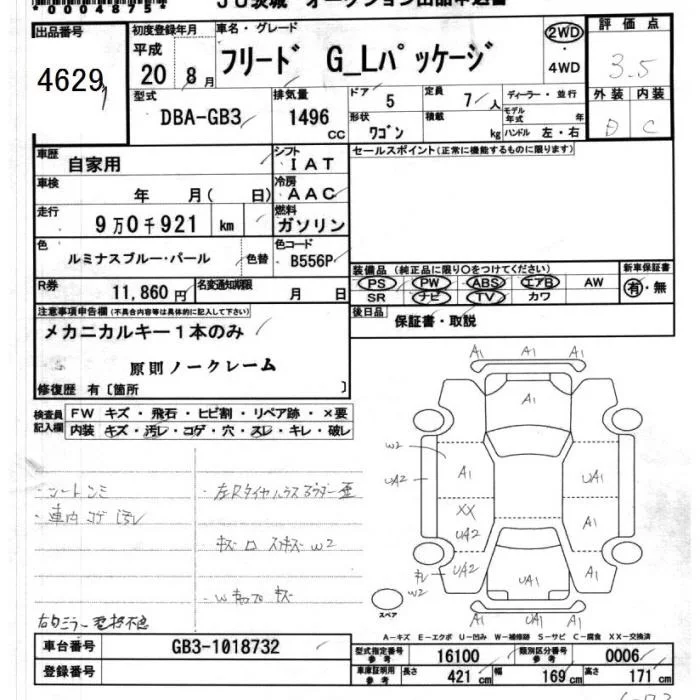 *0004875*
JU茨城 オークション出品申込書
出品番号 4629
初度登録年月 平成 20 8月
車名・グレード
フリード G_Lパッケージ
2WD ・ 4WD
評価点 3.5
外装 内装
D C
型式 DBA-GB3
排気量 1496 CC
ドア 5
定員 7人
形状 ワゴン
積載 kg
ディーラー・並行
モデル年式 年
ハンドル 左・右
車歴 自家用
シフト IAT
セールスポイント(正常に機能するものに限ります)
車検 年 月( 日)
冷房 AAC
走行 9万0千921 km
燃料 ガソリン
色 ルミナスブルー・パール 色替
色コード B556P
装備品 (純正品に限り○をつけてください)
新車保証書
PS PW ABS エアB AW
有・無
SR ナビ TV カワ
R券 11,860円
名変通知期限 月 日
後日品 保証書・取説
注意事項申告欄(不具合内容等は具体的に記入して下さい)
メカニカルキー1本のみ
原則ノークレーム
修復歴 有〔箇所 〕
検査員記入欄
FW キズ・飛石・ヒビ割・リペア跡・×要
内装 キズ・汚レ・コゲ・穴・スレ・キレ・破レ
・シートシミ
・車内コゲ汚レ
キズ
W2
A1 A1 A1
A1
W2
UA2
A1
UA1
XX
UA2
A1
UA2
W2
UA1
A1
A1 UA1 A1
スペア
A-キズ E-エクボ U-凹み W-補修跡 S-サビ C-腐食 XX-交換済
車台番号 GB3-1018732
登録番号
型式指定番号 参考 16100
類別区分番号 参考 0006
車庫証明用 参考 長さ 421 cm 幅 169 cm 高さ 171 cm